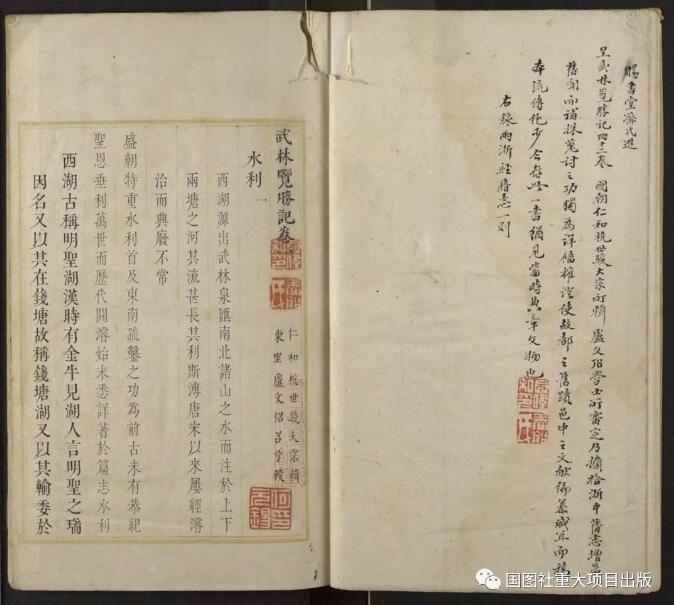 賜書堂孫氏進
呈武林覽勝記四十二卷 國朝仁和杭世駿大宗所輯 盧文弨學士所審定乃摭拾浙中舊志增
舊聞而補採蒐討之功獨為詳備 使故都之舊蹟邑中之文獻 咸具而稿
本流傳絕少今存此一書猶見當時典章文物也
右錄兩浙經籍志一則
武林覽勝記卷
仁和杭世駿大宗輯
東里盧文弨召弓校
水利一
西湖源出武林泉匯南北諸山之水而注於上下
兩塘之河其流甚長其利斯溥唐宋以來屢經濬
治而興廢不常
盛朝特重水利首及東南疏鑿之功為前古未有恭紀
聖恩垂利萬世而歷代開濬始末悉詳著於篇志水利
西湖古稱明聖湖漢時有金牛見湖人言明聖之瑞
因名又以其在錢塘故稱錢塘湖又以其輸委於
国图社重大项目出版